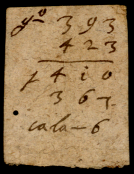 yº 393
423
p 410
363
cala-6